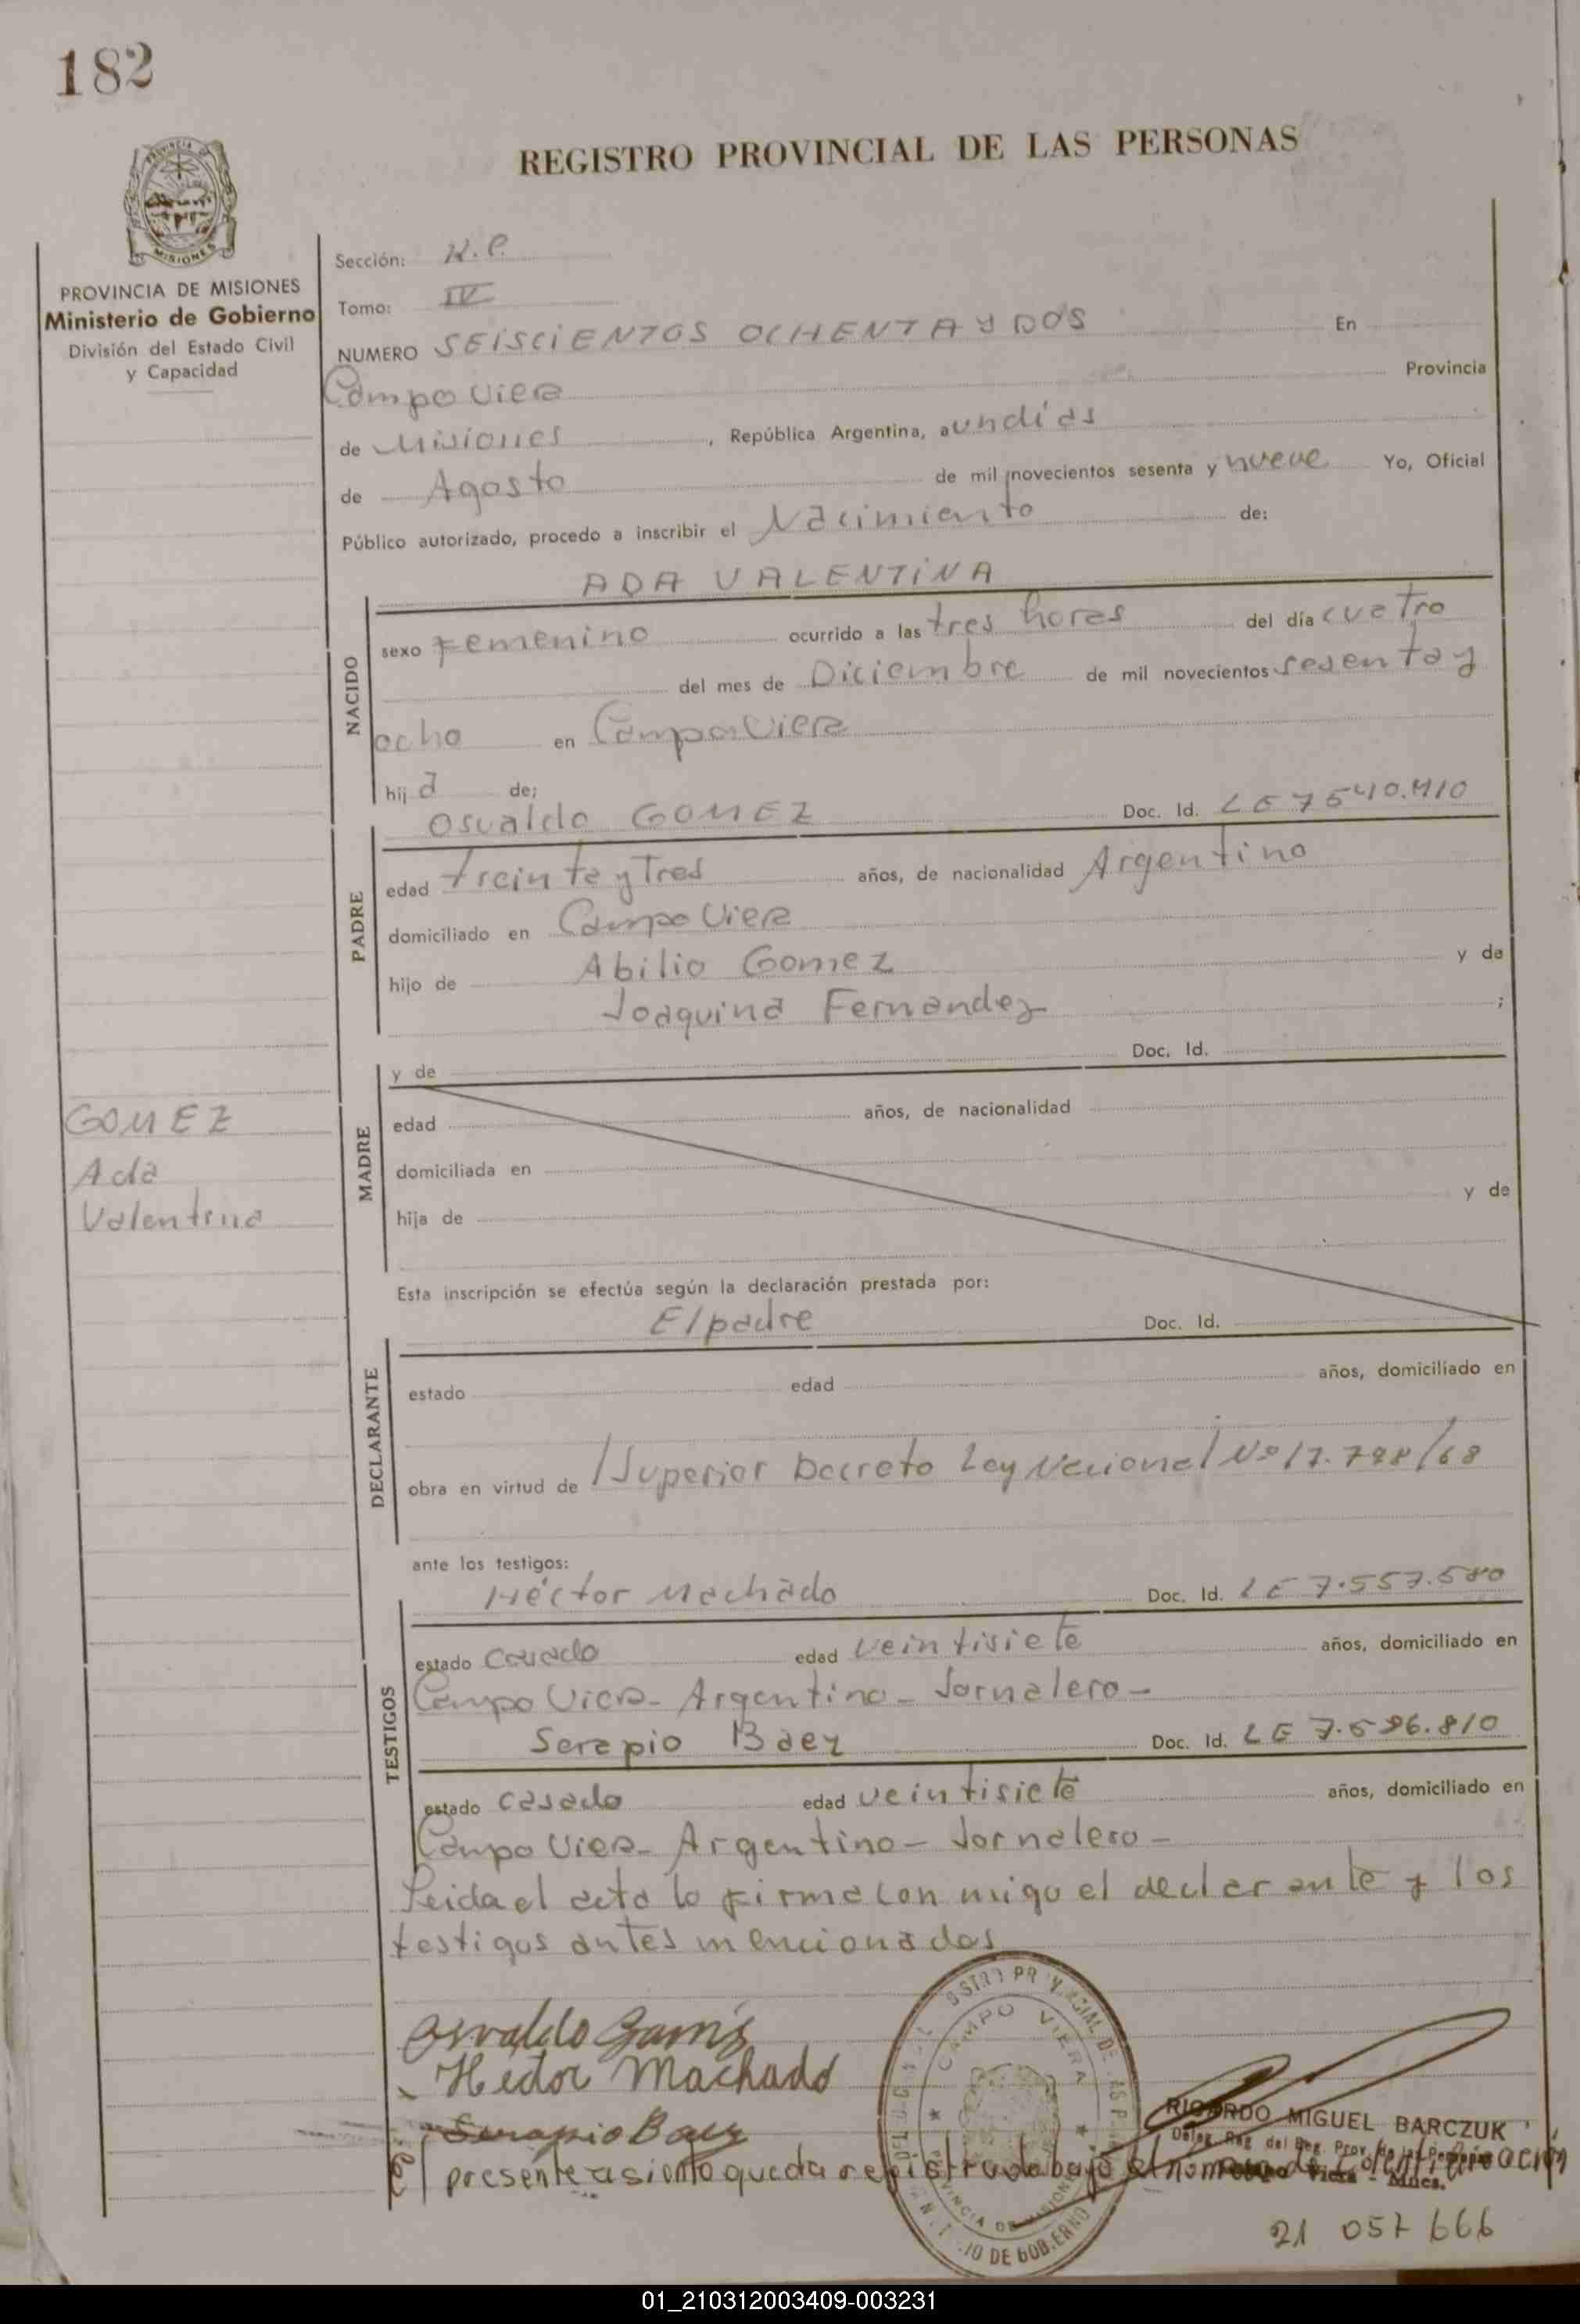 182
REGISTRO PROVINCIAL DE LAS PERSONAS
PROVINCIA DE MISIONES
MISIONES
PROVINCIA DE MISIONES
Ministerio de Gobierno
División del Estado Civil
y Capacidad
Sección:
Tomo: IV
NUMERO SEISCIENTOS OCHENTA Y DOS En
Campo Viera Provincia
de Misiones, República Argentina, a un días
de Agosto de mil novecientos sesenta y nueve Yo, Oficial
Público autorizado, procedo a inscribir el Nacimiento de:
NACIDO
ADA VALENTINA
sexo Femenino ocurrido a las tres horas del día cuatro
del mes de Diciembre de mil novecientos sesenta y
ocho en Campo Viera
hij a de;
PADRE
Osvaldo GOMEZ Doc. Id. LE 7540.410
edad treinta y Tres años, de nacionalidad Argentino
domiciliado en Campo Viera
hijo de Abilio Gomez y de
Joaquina Fernandez ;
MADRE
y de Doc. Id.
edad años, de nacionalidad
domiciliada en
hija de y de
GOMEZ
Ada
Valentina
Esta inscripción se efectúa según la declaración prestada por:
DECLARANTE
El padre Doc. Id.
estado edad años, domiciliado en
obra en virtud de /Superior Decreto Ley Nacional Nº 17.798/68
ante los testigos:
TESTIGOS
Héctor Machado Doc. Id. LE 7.557.580
estado Casado edad veintisiete años, domiciliado en
Campo Viera - Argentino - Jornalero -
Serapio Baez Doc. Id. LE 7.596.810
estado casado edad veintisiete años, domiciliado en
Campo Viera - Argentino - Jornalero -
Leida el acta la firma con migo el declarante y los
testigos antes mencionados
Osvaldo Gomez
Hector Machado
Serapio Baez
CAMPO VIERA
RICARDO MIGUEL BARCZUK
Deleg. Reg. del Reg. Prov. de las Personas
Campo Viera - Mnes.
presente asiento queda registrado bajo el número de identificación
21 057 666
01_210312003409-003231